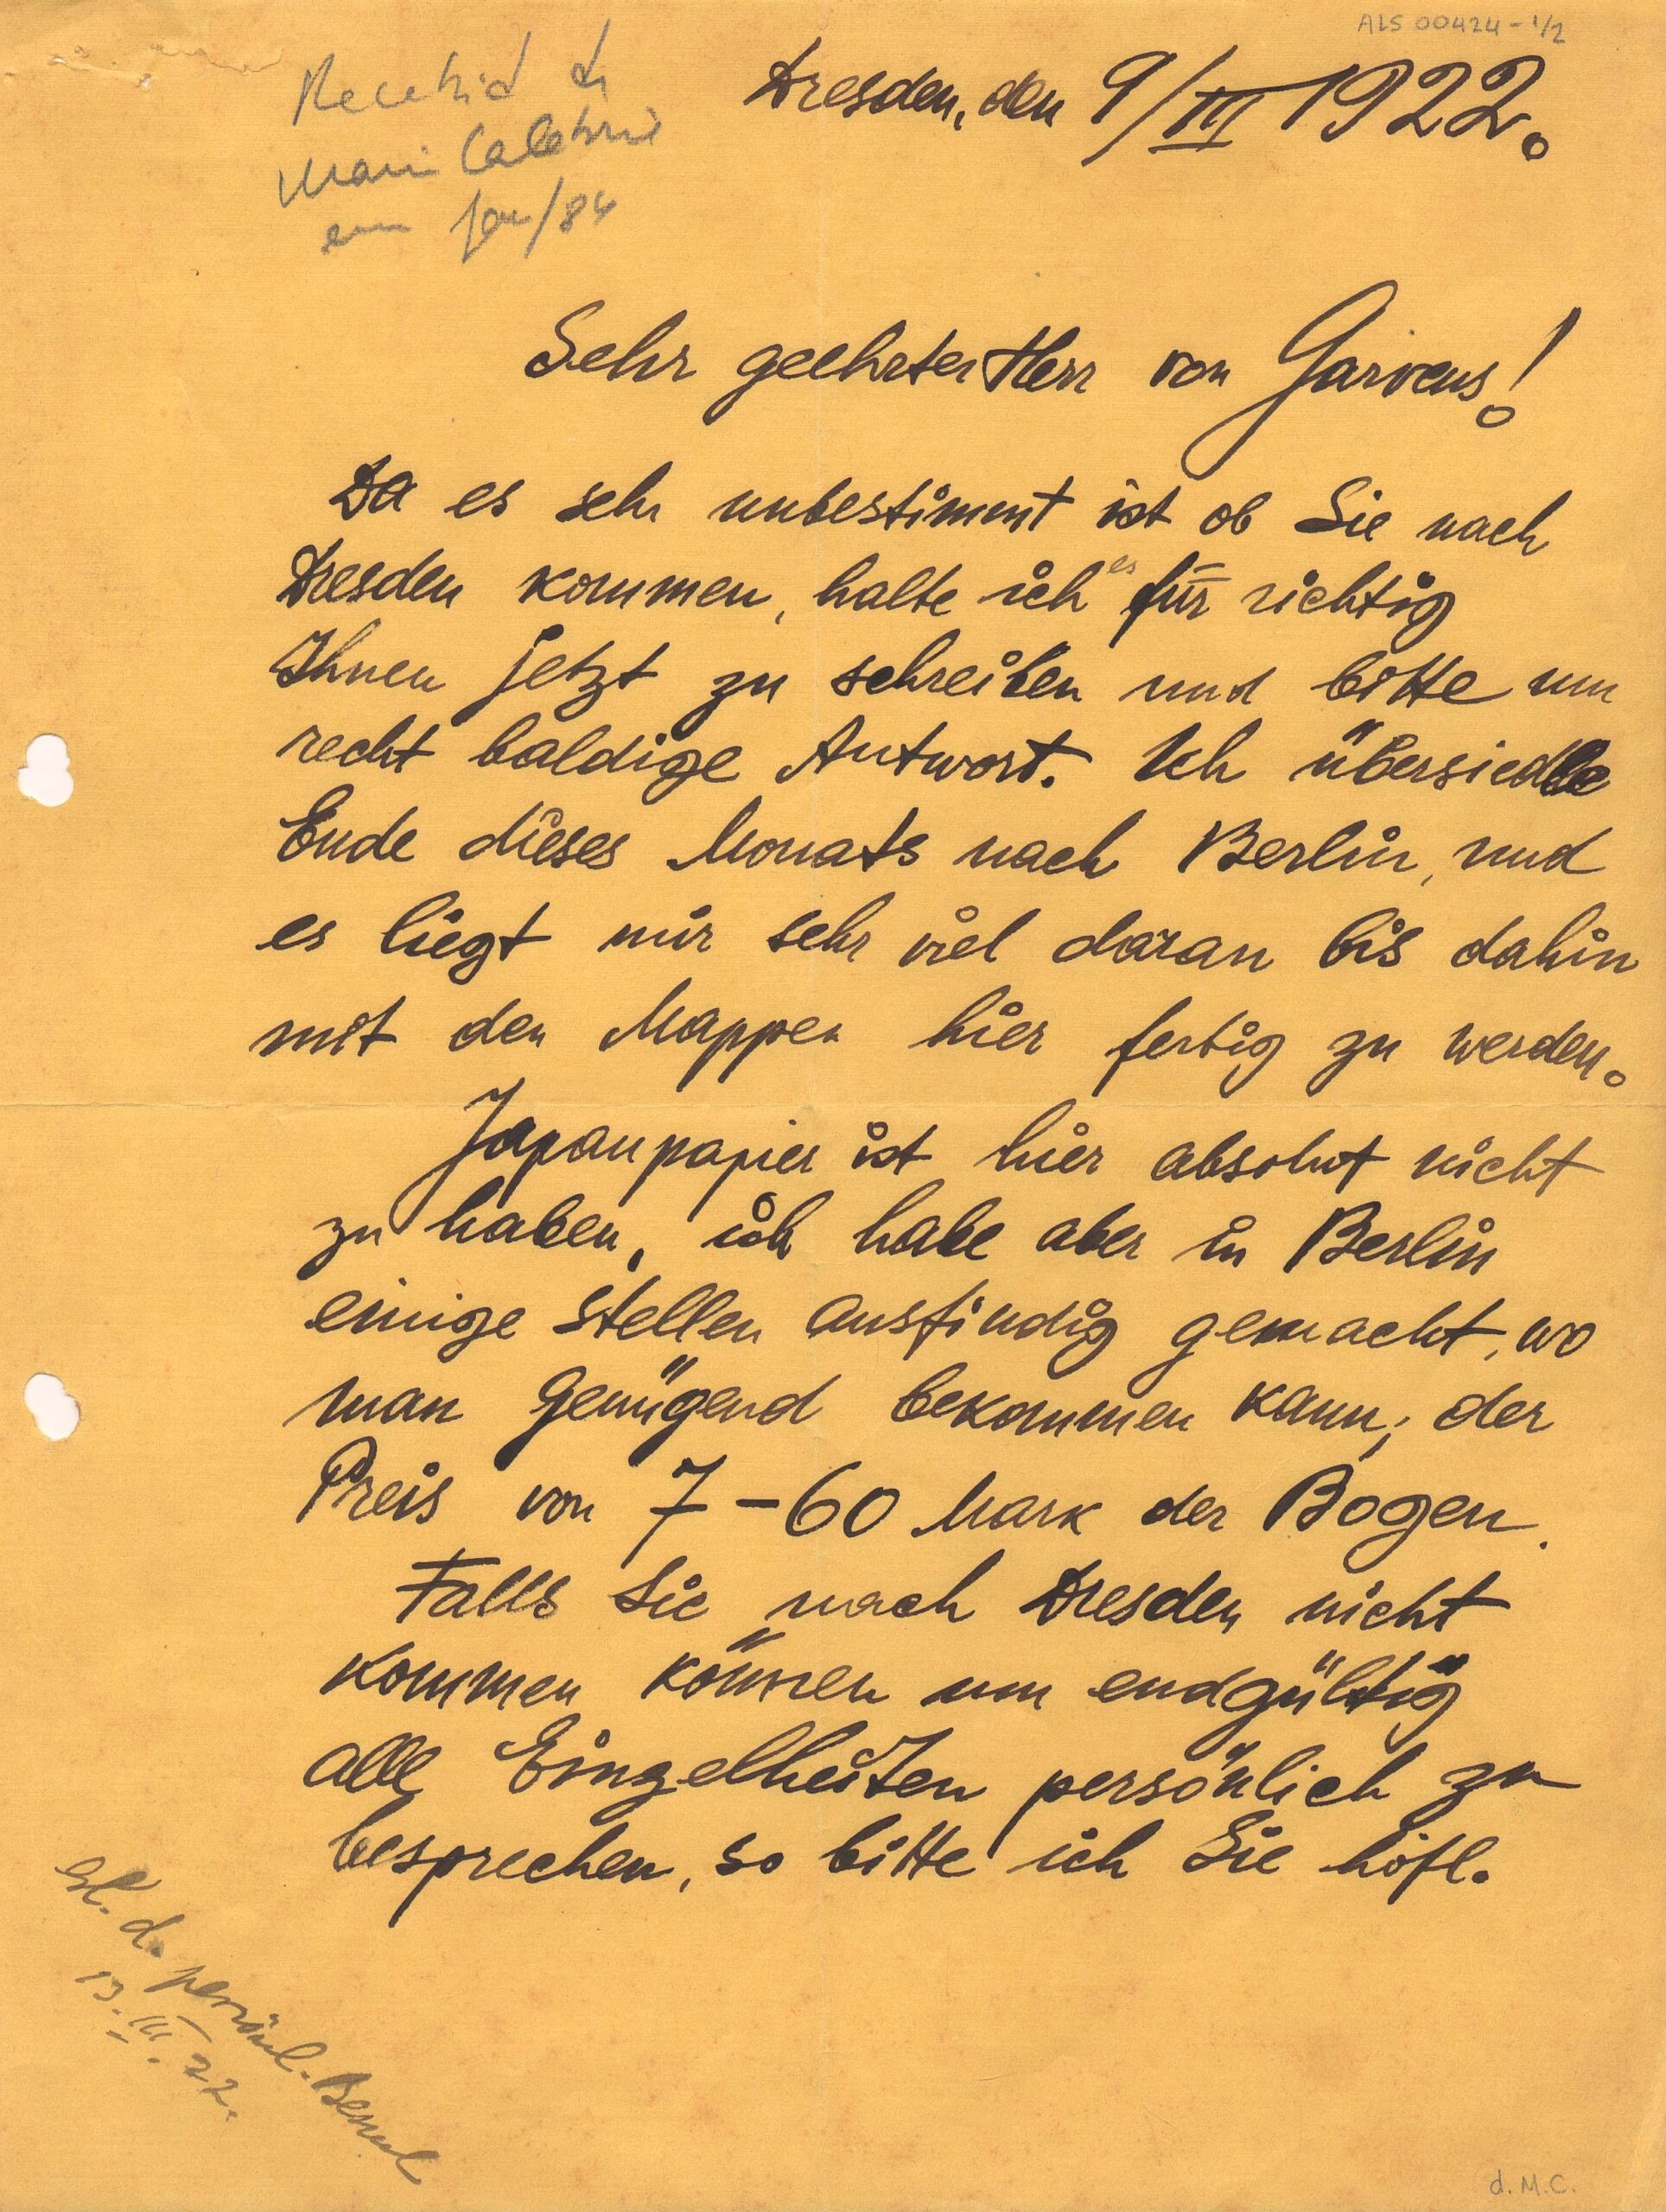 ALS 00424-1/2
Dresden, den 9/III 1922.
em Jan/84
Sehr geehrter Herr von Garvens!
Da es sehr unbestimmt ist ob Sie nach
Dresden kommen, halte ich es für richtig
Ihnen jetzt zu schreiben und bitte um
recht baldige Antwort. Ich übersiedle
Ende dieses Monats nach Berlin, und
es liegt mir sehr viel daran bis dahin
mit den Mappen hier fertig zu werden.
Japanpapier ist hier absolut nicht
zu haben, ich habe aber in Berlin
einige Stellen ausfindig gemacht, wo
man genügend bekommen kann; der
Preis von 7-60 Mark der Bogen.
Falls Sie nach Dresden nicht
kommen können um endgültig
alle Einzelheiten persönlich zu
besprechen, so bitte ich Sie höfl.
d. persönl. Besuch
13.III.22.
d. M.C.